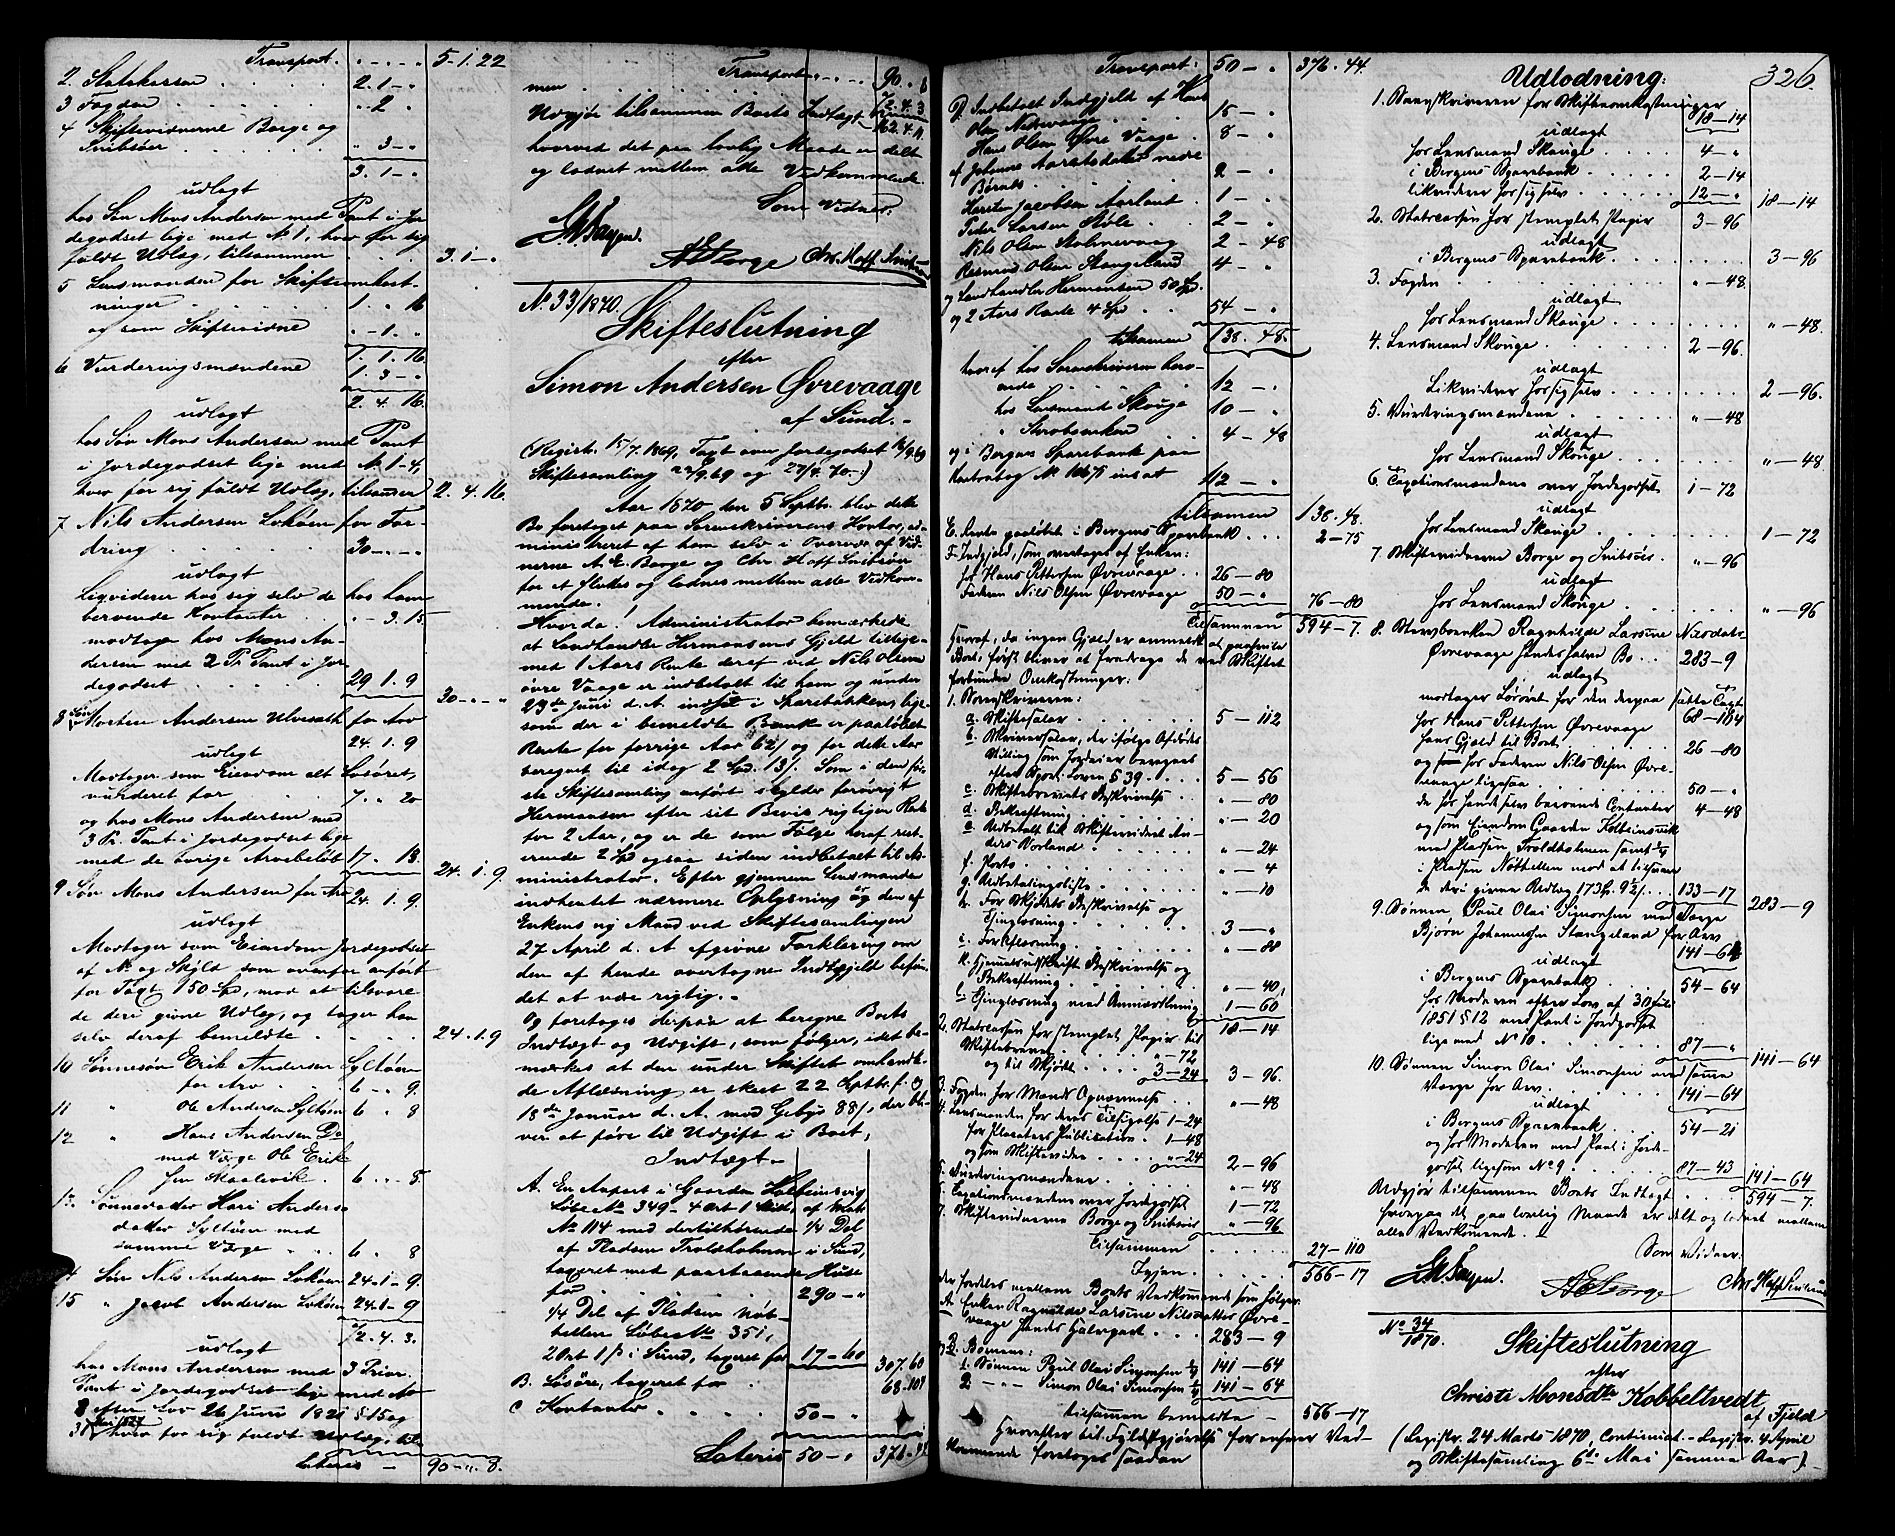 Transport. " - " - " 5-1.22
2. Statskassen . . . 2.1-"
3 Fogden . . . "2"
4 Skiftevidnerne Borge og
Snitsøer . . . "3-"
3.1-"
udlagt
hos Søn Mons Andersen med Pant i Jor
degodset lige med No 1, hver for sig
fuldt Udlæg, tilsammen . . . 3.1-"
5 Lensmanden for Skifteomkost-
ninger . . . 1. " 16
og som Skiftevidne "-1. "
1.1.16.
6 Vurderingsmændene 1.3-"
2.4.16.
udlagt
hos Søn Mons Andersen med Pant
i Jordegodset lige med No 1-4,
hver for sig fuldt Udlæg, tilsammen 2.4.16.
7 Nils Andersen Lokøen for For-
dring . . . 30-"-"
udlagt
Liqviderer hos sig selv de hos ham
beroende Kontanter . "-3.15
modtager hos Mons An-
dersen med 2 Pr. Pant i Jor
degodset . . . 29.1.9
30-"-"
8 Søn Morten Andersen Ulvesæth for Arv
24.1.9
udlagt
Modtager som Eiendom alt Løsøret,
vurderet for . . 7. " 20
og hos Mons Andersen med
3 Pr. Pant i Jordegodset lige
med de øvrige Arvebeløb 17. " 13.
24.1.9.
9. Søn Mons Andersen for Arv 24.1.9.
udlagt
Modtager som Eiendom Jordegodset
af No og Skyld som ovenfor anført
for Taxt 150 Spd, mod at tilsvare
de deri givne Udlæg, og tager han
selv deraf bemeldte . . . 24.1.9
10 Sønnesøn Erik Andersen Syltøen
for Arv . . 6-"9.
11 " Ole Andersen Syltøen 6 " 8
12 " Hans Andersen Do
med Værge Ole Erik-
sen Skaalevik. 6 " 8
13. Sønnedatter Kari Anders-
datter Syltøen med
samme Værge . . 6 " 8
14 Søn Nils Andersen Lokøen 24-1-9.
15 " Jacob Andersen Lokøen 24.1-9
72.4.3.
udlagt
hos Mons Andersen med 3 Prior.
Pant i Jordegodset lige med No
8 efter Lov 26 Juni 1821 § 15 og
hver for sig fuldt Udlæg, til-
Lateris - 90-". 8.
Transport " - " - " 90. " 8
men . . . 72.4.3
Udgjør tilsammen Boets Indtægt 162.4.11
hvorved det paa lovlig Maade er delt
og lodnet mellem alle Vedkommende.
Som Vidner:
AEBorge Chr. Hoff Snitsøer
No 33/1870.
Skifteslutning
efter
Simon Andersen Øvrevaage
af Sund.-
(Registr. 15/7.1869, Taxt over Jordegodset 16/9.69
Skiftesamling 22/9.69 og 27/4.70.-)
Aar 1870 den 5 Septbr. blev dette
Bo foretaget paa Sorenskriverens Kontor, ad-
ministreret af ham selv i Overvær af Vid-
nerne A. E. Borge og Chr Hoff Snitsøer
for at sluttes og lodnes mellem alle Vedkom-
mende.
Hvorda! Administrator bemærkede
at Landhandler Hermansens Gjeld tillige-
med 1 Aars Rente deraf ved Nils Olsen
øvre Vaage er indbetalt til ham og under
23de Juni d. A. indsat i Sparebankens lige-
som der i bemeldte Bank er paaløbet
Rente for forrige Aar 62/ og for dette Aar
beregnet til idag 2 Spd. 13/. Som i den før-
ste Skiftesamling anført skylder forøvrigt
Hermansen efter sit Bevis rigtigen Rente
for 2 Aar, og er de som Følge heraf rest-
erende 2 Spd ogsaa siden indbetalt til Ad-
ministrator. Efter gjennem Lensmanden
indhentet nærmere Oplysning og den af
Enkens ny Mand ved Skiftesamlingen
27 April d. A afgivne Forklaring om
den af hende overtagne Indtgjeld befin-
det at være rigtig.-
Og foretages derpaa at beregne Boets
Indtægt og Udgift, som følger, idet be-
mærkes at den under Skiftet omhandle-
de Aflæsning er skeet 22 Septbr. f. og
18de Januar d. A. mod Gebyr 88/, der bli-
ver at føre til Udgift i Boet,
Indtægt.
A. En Anpart i Gaarden Kolbeinsvig
Løbe No 349-4 Ort 1 Skill, af Matr.
No 114 med dertilhørende 1/4 Del
af Pladsen Troldholmen i Sund,
tageret med paastaaende Huse
for . . . 290-"
1/4 Del af Pladsen Nøt-
hellen Løbe No 351,
2 Ort 1 ß i Sund, tageret for 17-60
307.60
B. Løsøre, tageret for . 68.104
C Kontanter . . . 50-"
Lateris 50-"
Transport: 50-" 376.44.
D. Indbetalt Indgjeld af Hans
Olsen Nedrevaage . . 15-"
Hans Olsen Øvre Vaage . 8-"
af Johanne Aarvtsdatter nedre
Børnes . . . 2-"
Karsten Jacobsen Aarland . 1-"
Peder Larsen Støle . 2-"
Nils Olsen Stolnevaag 2-48
Rasmus Olsen Stangeland 4-"
og Landhandler Hermansen 50 Spd.
og 2 Aars Rente 4 Spd . . 54-"
tilsamen 138.48.
hvoraf hos Sorenskriveren bero-
ende . . . 12-"
hos Lensmand Skouge 10-"
" Sterboenken . . 4-48
og i Bergens Sparebank paa
Contrabog No indsat 112-"
tilsamen 138.48.
E. Rente paaløbet i Bergens Sparebank . . . 2-75
F. Indgjeld, som overtages af Enken:
hos Hans Pettersen Øvrevaage . . 26-80
Faderen Nils Olsen Øvrevaage 50-"
76-80
Tilsammen 594-7.
Hvoraf, da ingen Gjeld er anmeldt at paahvile
Boet, først bliver at fradrage de med Skiftet
forbundne Omkostninger:
1. Sorenskriveren:
a. Skiftesalær . . . 5-112
b. Skriversalær, der ifølge Afdødes
Stilling som Jordeier beregnes
efter Sport. Loven § 39 . . . 5-56
c. Skiftebrevets Beskrivelse . . "-80
d. Bekræftning . . . "-20
e. Udbetalt til Skiftevidnet An-
ders Vorland . . . "-24
f. Porto . . . "-4
g. Udbetalingsliste . . . "-10
h. For Skjødets Beskrivelse og
Thinglæsning . . . 3-"
i. For Aflæsning . . . "-88
k. Gjenudskrift Beskrivelse og
Bekræftning . . . "-40,
l. Thinglæsning med Annmærkning 1-60
18-14
2. Statscassen for stemplet Papir til
Skiftebrevene . . . "-72
og til Skjødet . . . 3-24 3-96.
3. Fogden for Mands Opnævnelse . . "-48
4. Lensmanden for dens Tilsigelse 1-24
for Placaters Publikation . 1-48
og som Skiftevidne . . "-24 2-96
5. Vurderingsmændene . . . "-48
6. Taxationsmændene over Jordegodset 1-72
7. Skiftevidnerne Borge og Snitsøer "-96
Tilsammen . . . 27-110
Igjen . . . 566-17
der fordeles mellem Boets Vedkommende som følger:
A. Enken Ragnhilde Larsine Nilsdatter Øvre-
vaage hendes Halvpart . . . 283-9
B. Børnene:
1. Sønnen Paul Olai Simonsen 141-64
2. — — Simon Olai Simonsen 141-64
tilsamen bemeldte - 566-17
Hvorefter til Fyldestgjørelse for enhver Ved-
kommende foretoges saadan
326.
Udlodning:
1. Sorenskriveren for Skifteomkostninger
18-14
udlagt
hos Lensmand Skouge . . . 4-"
i Bergens Sparebank . . . 2-14
likviderer hos sig selv . . . 12-" 18-14
2. Statscassen for stemplet Papir 3-96
udlagt
i Bergens Sparebank . . . 3-96
3. Fogden . . . "-48.
udlagt
hos Lensmand Skouge . . . "-48.
4. Lensmand Skouge . . . 2-96.
udlagt
Likviderer hos sig selv . . . 2-96.
5. Vurderingsmændene . . . "-48
udlagt
hos Lensmand Skouge . . . "-48
6. Taxationsmændene over Jordegodset 1-72
udlagt
hos Lensmand Skouge . . . 1-72
7 Skiftevidnerne Borge og Snitsøer . "-96
udlagt
hos Lensmand Skouge . . . "-96
8. Sterboenken Ragnhilde Larsine Nilsdatter
Øvrevaage hendes halve Bo . . 283-9
udlagt
modtager Løsøret for den derpaa satte Taxt
68-104
hos Hans Pettersen Øvrevaage
hans Gjeld til Boet . . . 26-80
og hos Faderen Nils Olsen Øvre-
vaage ligesaa . . . 50-"
de hos hende selv beroende Contanter 4-48
og som Eiendom Gaarden Kolbeinsvik
med Pladsen Troldholmen samt 1/4
i Pladsen Nøthellen mod at tilsvare
de deri givne Udlæg 173 Sp. 9½/. . . 133-17
283-9
9. Sønnen Paul Olai Simonsen med Værge
Bjørn Johannessen Stangeland for Arv
141-64
udlagt
i Bergens Sparebank . . 54-64
hos Moderen efter Lov af 30 Juli
1851 § 12 med Pant i Jordegodset
lige med No 10 . . . 87-"
141-64
10. Sønnen Simon Olai Simonsen med samme
Værge for Arv . . . 141-64
udlagt
i Bergens Sparebank . . . 54-21
og hos Moderen med Pant i Jorde-
godset ligesom No 9 . . . 87-43 141-64
Udgjør tilsammen Boets Indtægt . . . 594-7.
hvorpaa det paa lovlig Maade er delt og lodnet mellem
alle Vedkommende.
Som Vidner:
AEBorge Chr Hoff Snitsøer
No 34/1870.
Skifteslutning
efter
Christi Monsdtr Kobbeltvedt
af Fjeld
(Registr. 24 Marts 1870, Continuat.-Registr. 4 April
og Skiftesamling 6te Mai samme Aar).